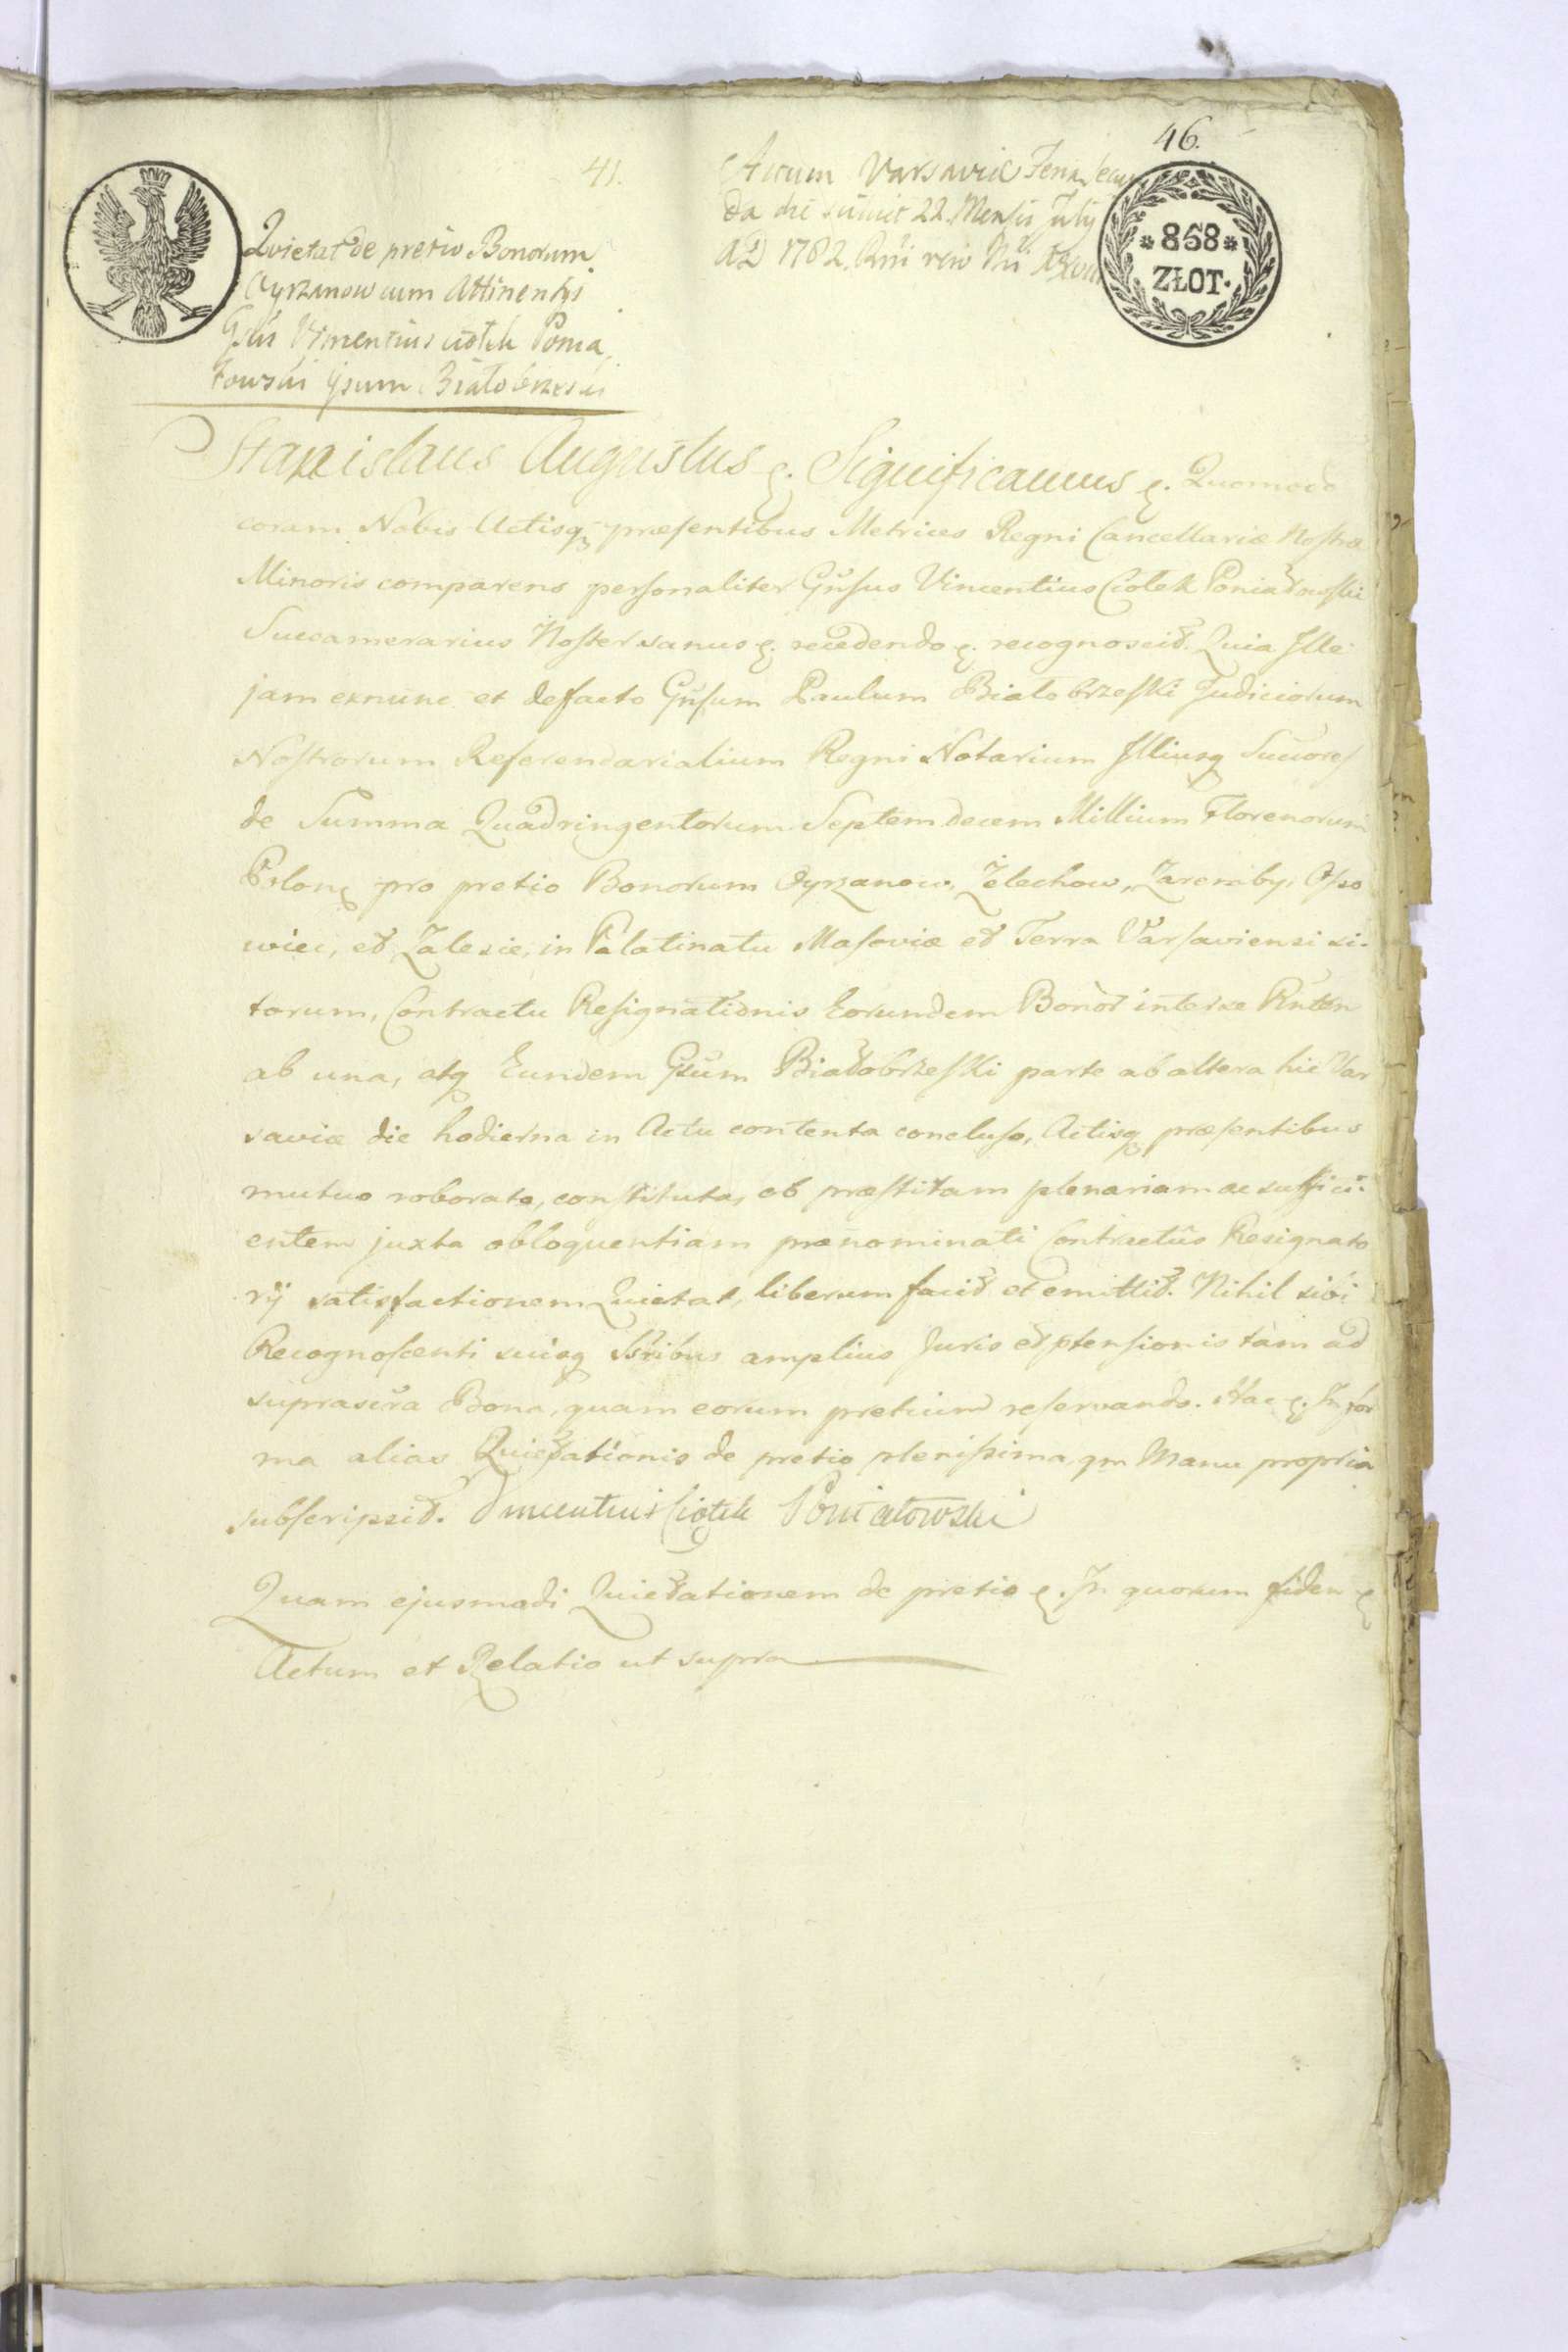 46.
41.
Actum Varsaviæ Feria secun
da die scilicet 22. Mensis July
AD 1782. Rñi vero Nri
*868*
ZŁOT.
Quietatº de pretio Bonorum
Oyrzanow cum Attinentijs
Gsus Vincentius Ciołek Ponia
towski Gsum Białobrzeski
Stanislaus Augustus ꝛ. Significamus ꝛ. Quomodo
coram Nobis Actisq præsentibus Metrices Regni Cancellariæ Nostræ
Minoris comparens personaliter Gñsus Vincentius Ciołek Poniatowski
Succamerarius Noster sanus ꝛ. recedendo ꝛ. recognoscit. Quia Ille
jam exnunc et defacto Gñsum Paulum Białobrzeski Judiciorum
Nostrorum Referendarialium Regni Notarium Illiusq Succores
de Summa Quadringentorum Septemdecem Millium Florenorum
Polonꝛ pro pretio Bonorum Oyrzanow, Żelechow, Zaremby, Osso
wiec, et Zalesie, in Palatinatu Masoviæ et Terra Varsaviensi si-
torum, Contractu Resignationis Eorundem Bonor interse Rntem
ab una, atq Eundem Gsum Białobrzeski parte ab altera hic Var
saviæ die hodierna in Actu contenta concluso, Actisq præsentibus
mutuo roborato, constituta, ob præstitam plenariam ac suffici-
entem juxta obloquentiam prænominati Contractûs Resignato
rij satisfactionem Quietat, liberum facit et emittit. Nihil sibi
Recognoscenti suisq Ssribus amplius Juris et ptensionis tàm ad
suprascra Bona, quam eorum pretium reservando. Hac ꝛ. In for
ma alias Quietationis de pretio plenissima, qm Manu propria
subscripsit. Vincentius Ciołek Poniatowski
Quam ejusmodi Quietationem de pretio ꝛ. In quorum fidem ꝛ
Actum et Relatio ut supra